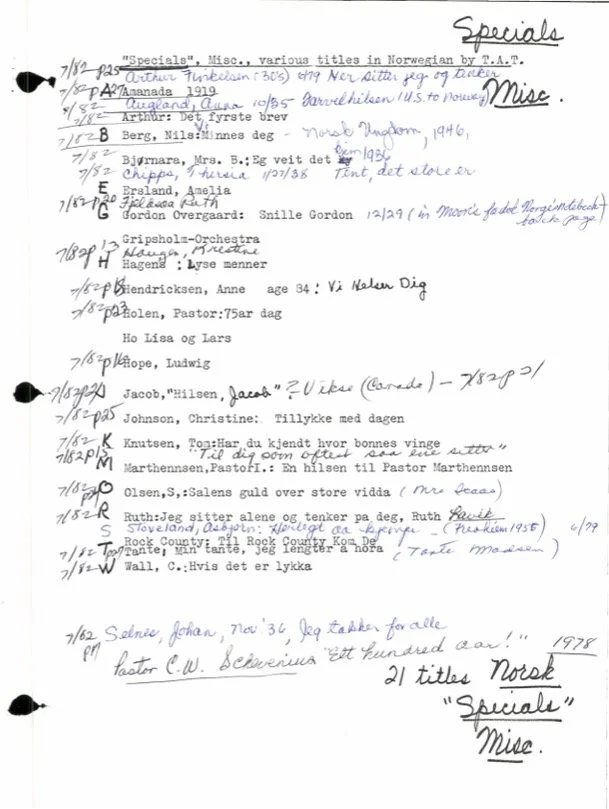 Specials
"Specials", Misc., various titles in Norwegian by T.A.T.
7/82 p25 Arthur Finkelsen (305) 6/79 Her sitter jeg og tenker
Misc.
7/82 p27 A Amanada 1919
7/82 Augland, Anna 10/35 Farvelhilsen (U.S. to Norway)
7/82 Arthur: Det fyrste brev
7/82 B Berg, Nils: Vi Minnes deg - Norsk Ungdom, 1946,
7/82 Bjørnara, Mrs. B.:Eg veit det 1936
7/82 Chipps, Theresia 1/27/38 Tint, det store er
E Ersland, Amelia
7/82 p20 Ruth
G Gordon Overgaard: Snille Gordon 12/29 (in Moon's faded Norge Notebook- back page)
Gripsholm-Orchestra
7/82 p 13 Haugen, Kristine
H Hagens : Lyse menner
7/82 p18 Hendricksen, Anne age 84: Vi Helser Dig
7/82 p23 Holen, Pastor:75ar dag
Ho Lisa og Lars
7/82 p16 Hope, Ludwig
7/82 p21 Jacob,"Hilsen, Jacob" ? Vikse (Canada) - 7/82 p 21
7/82 p25 Johnson, Christine: Tillykke med dagen
7/82 K Knutsen, Tom:Har du kjendt hvor bonnes vinge
7/82 p15 "Til dig som oftest saa ene sitter"
M Marthennsen,PastorI.: En hilsen til Pastor Marthennsen
7/82 O Olsen,S,:Salens guld over store vidda (Mrs Scaas)
7/82 R Ruth:Jeg sitter alene og tenker pa deg, Ruth Lavik
S Stoveland, Asbjørn: Herlegt aa kjempe - (Preskiem 1955) 6/79
Rock County: Til Rock County Kom De
7/82 T Tante, Min tante, jeg lengter a hora (Tante Madsen)
7/82 W Wall, C.:Hvis det er lykka
7/82 Selnes, Johan, Nov '36, Jeg takker for alle
Pastor C.W. Schevenius "Ett hundred aar!" 1978
21 titles Norsk
"Specials"
Misc.